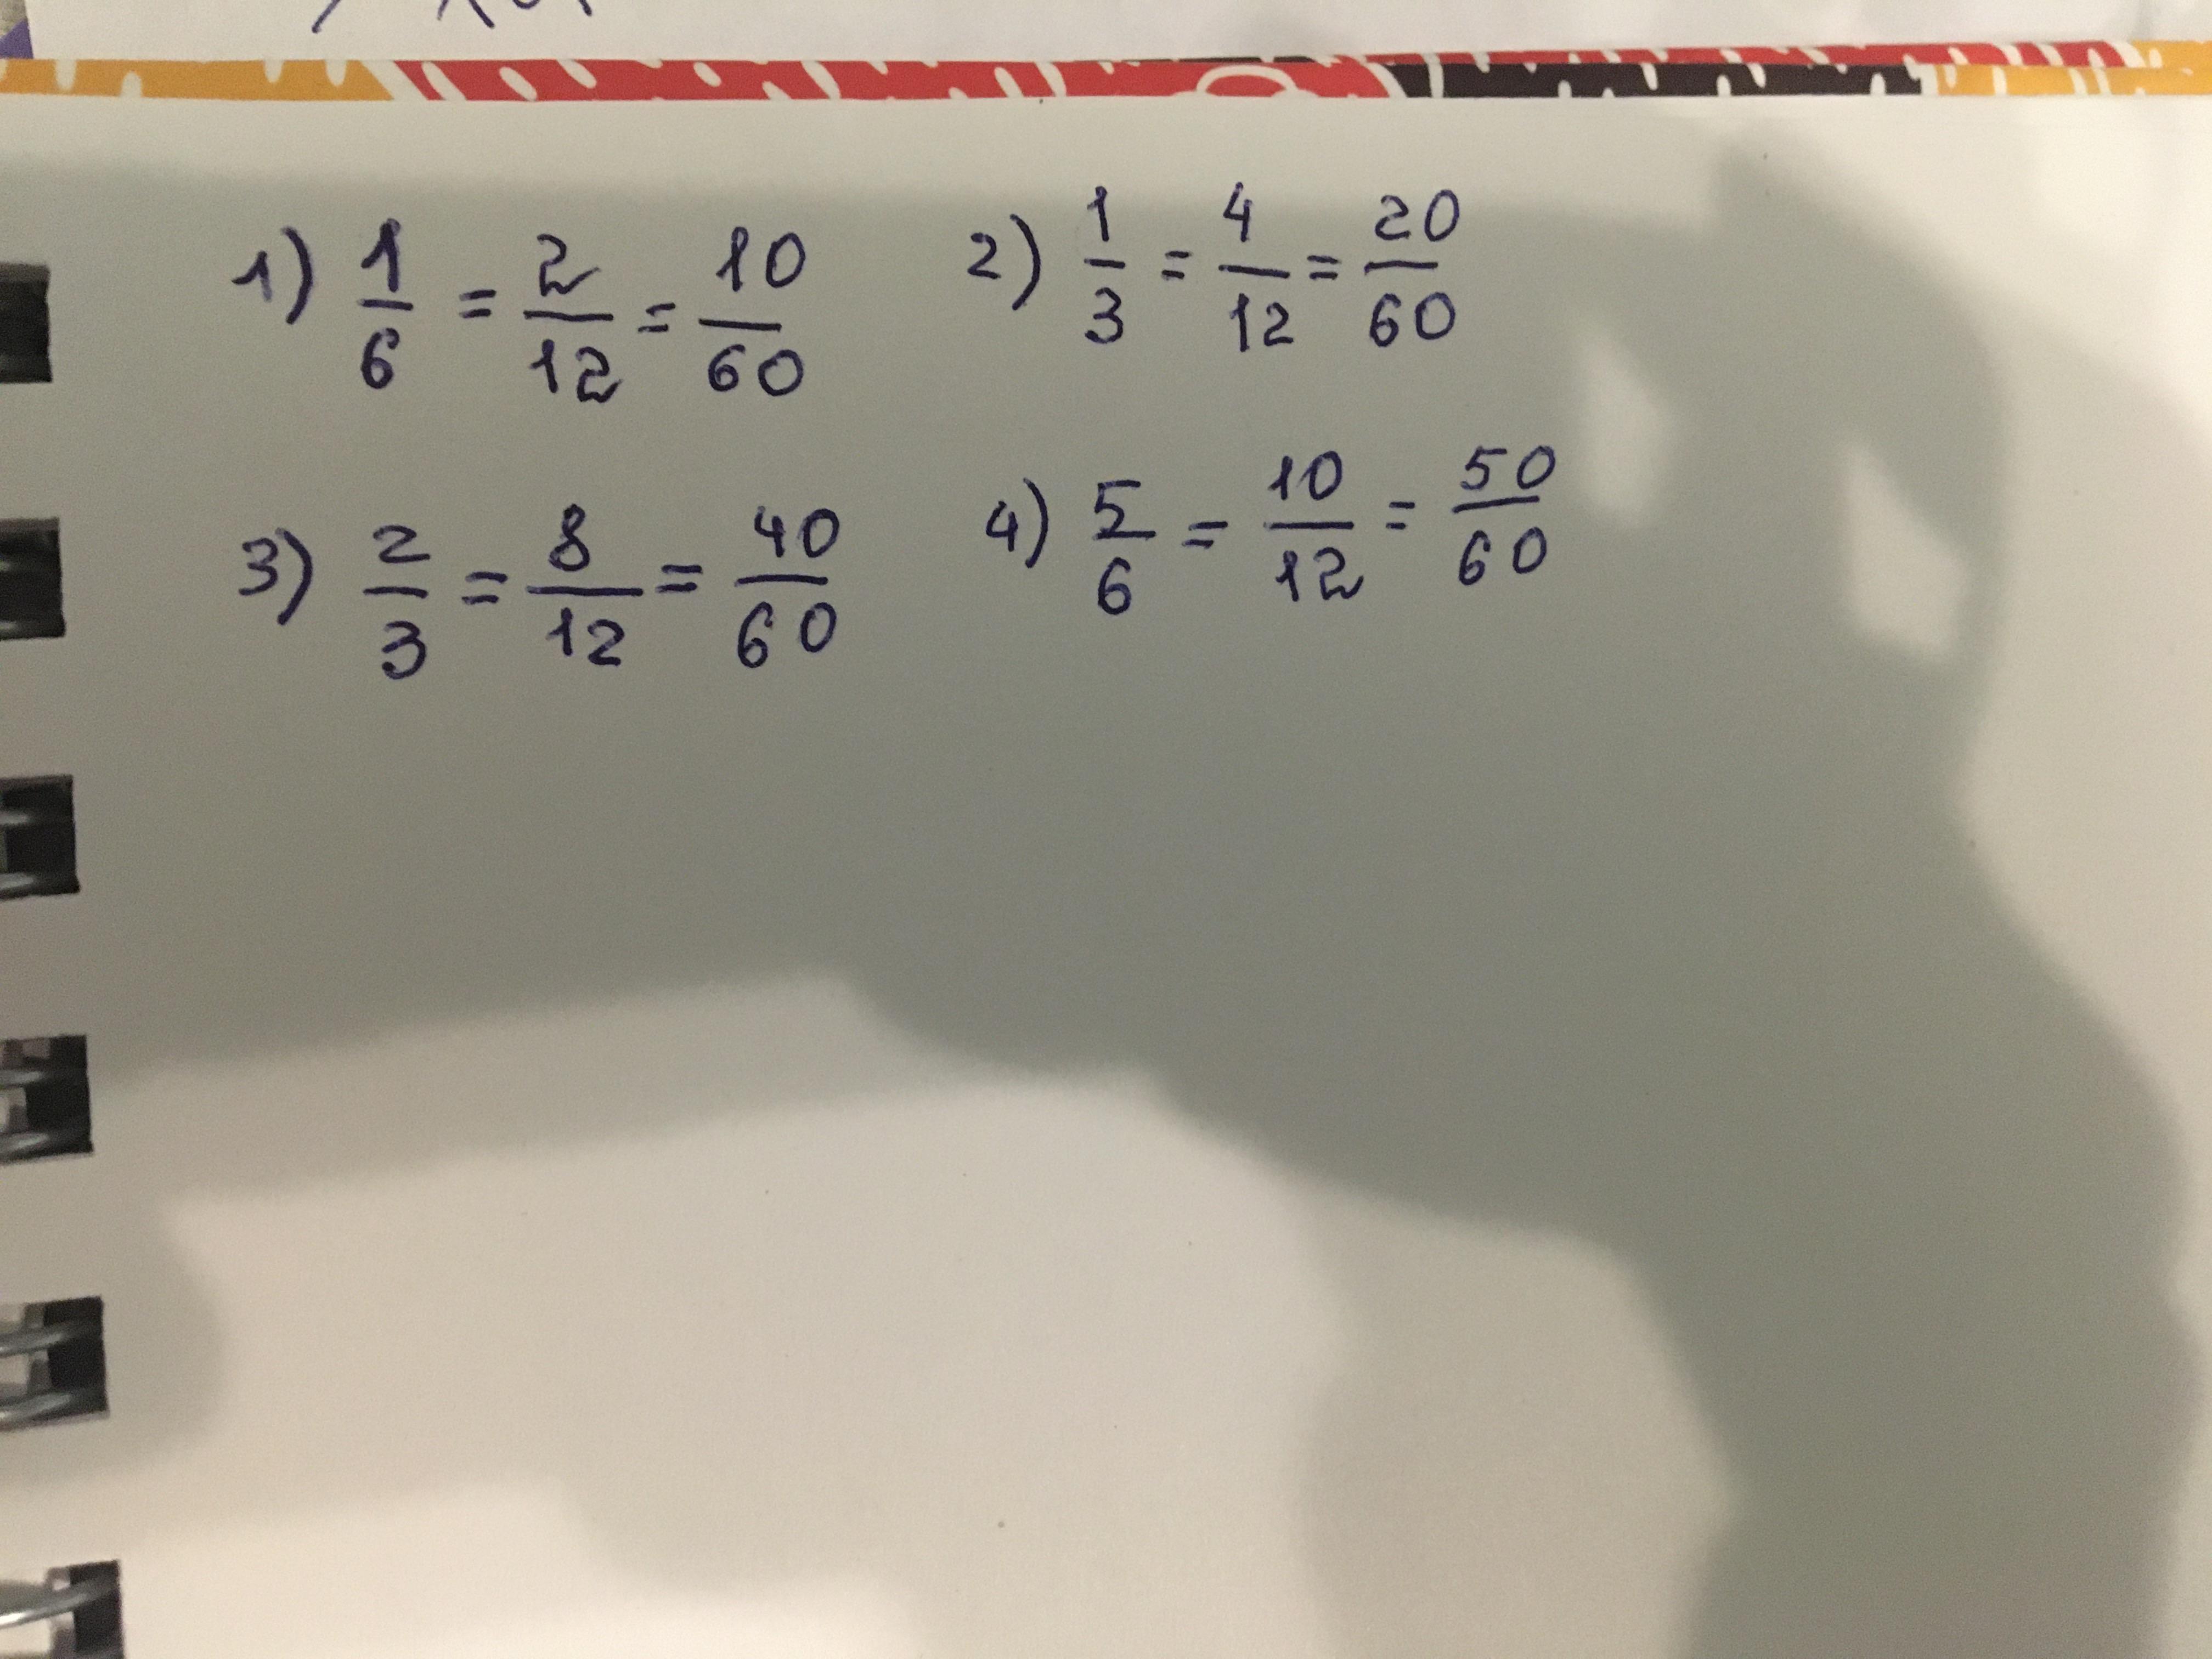 1) 1/6 = 2/12 = 10/60 2) 1/3 = 4/12 = 20/60
3) 2/3 = 8/12 = 40/60 4) 5/6 = 10/12 = 50/60